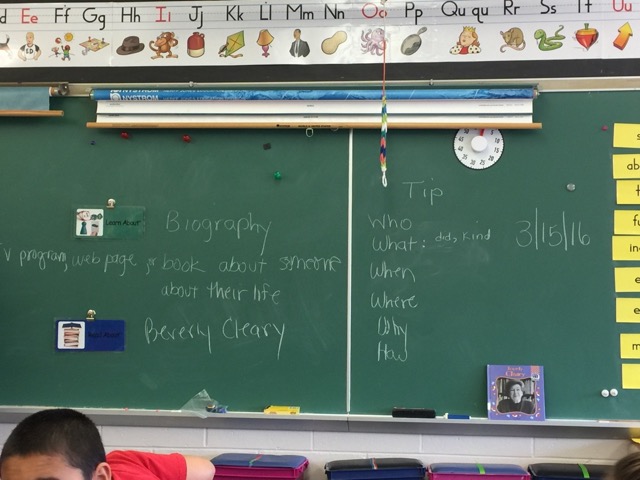 d Ee Ff Gg Hh Ii Jj Kk Ll Mm Nn Oo Pp Qu qu Rr Ss Tt Uu
NYSTROM
NYSTROM
Learn About
Biography
TV program, web page, or book about someone
about their life
Beverly Cleary
Tip
Who
What: did, kind
When
Where
Why
How
3/15/16
Beverly
Cleary
s
ab
t
fu
in
e
e
m